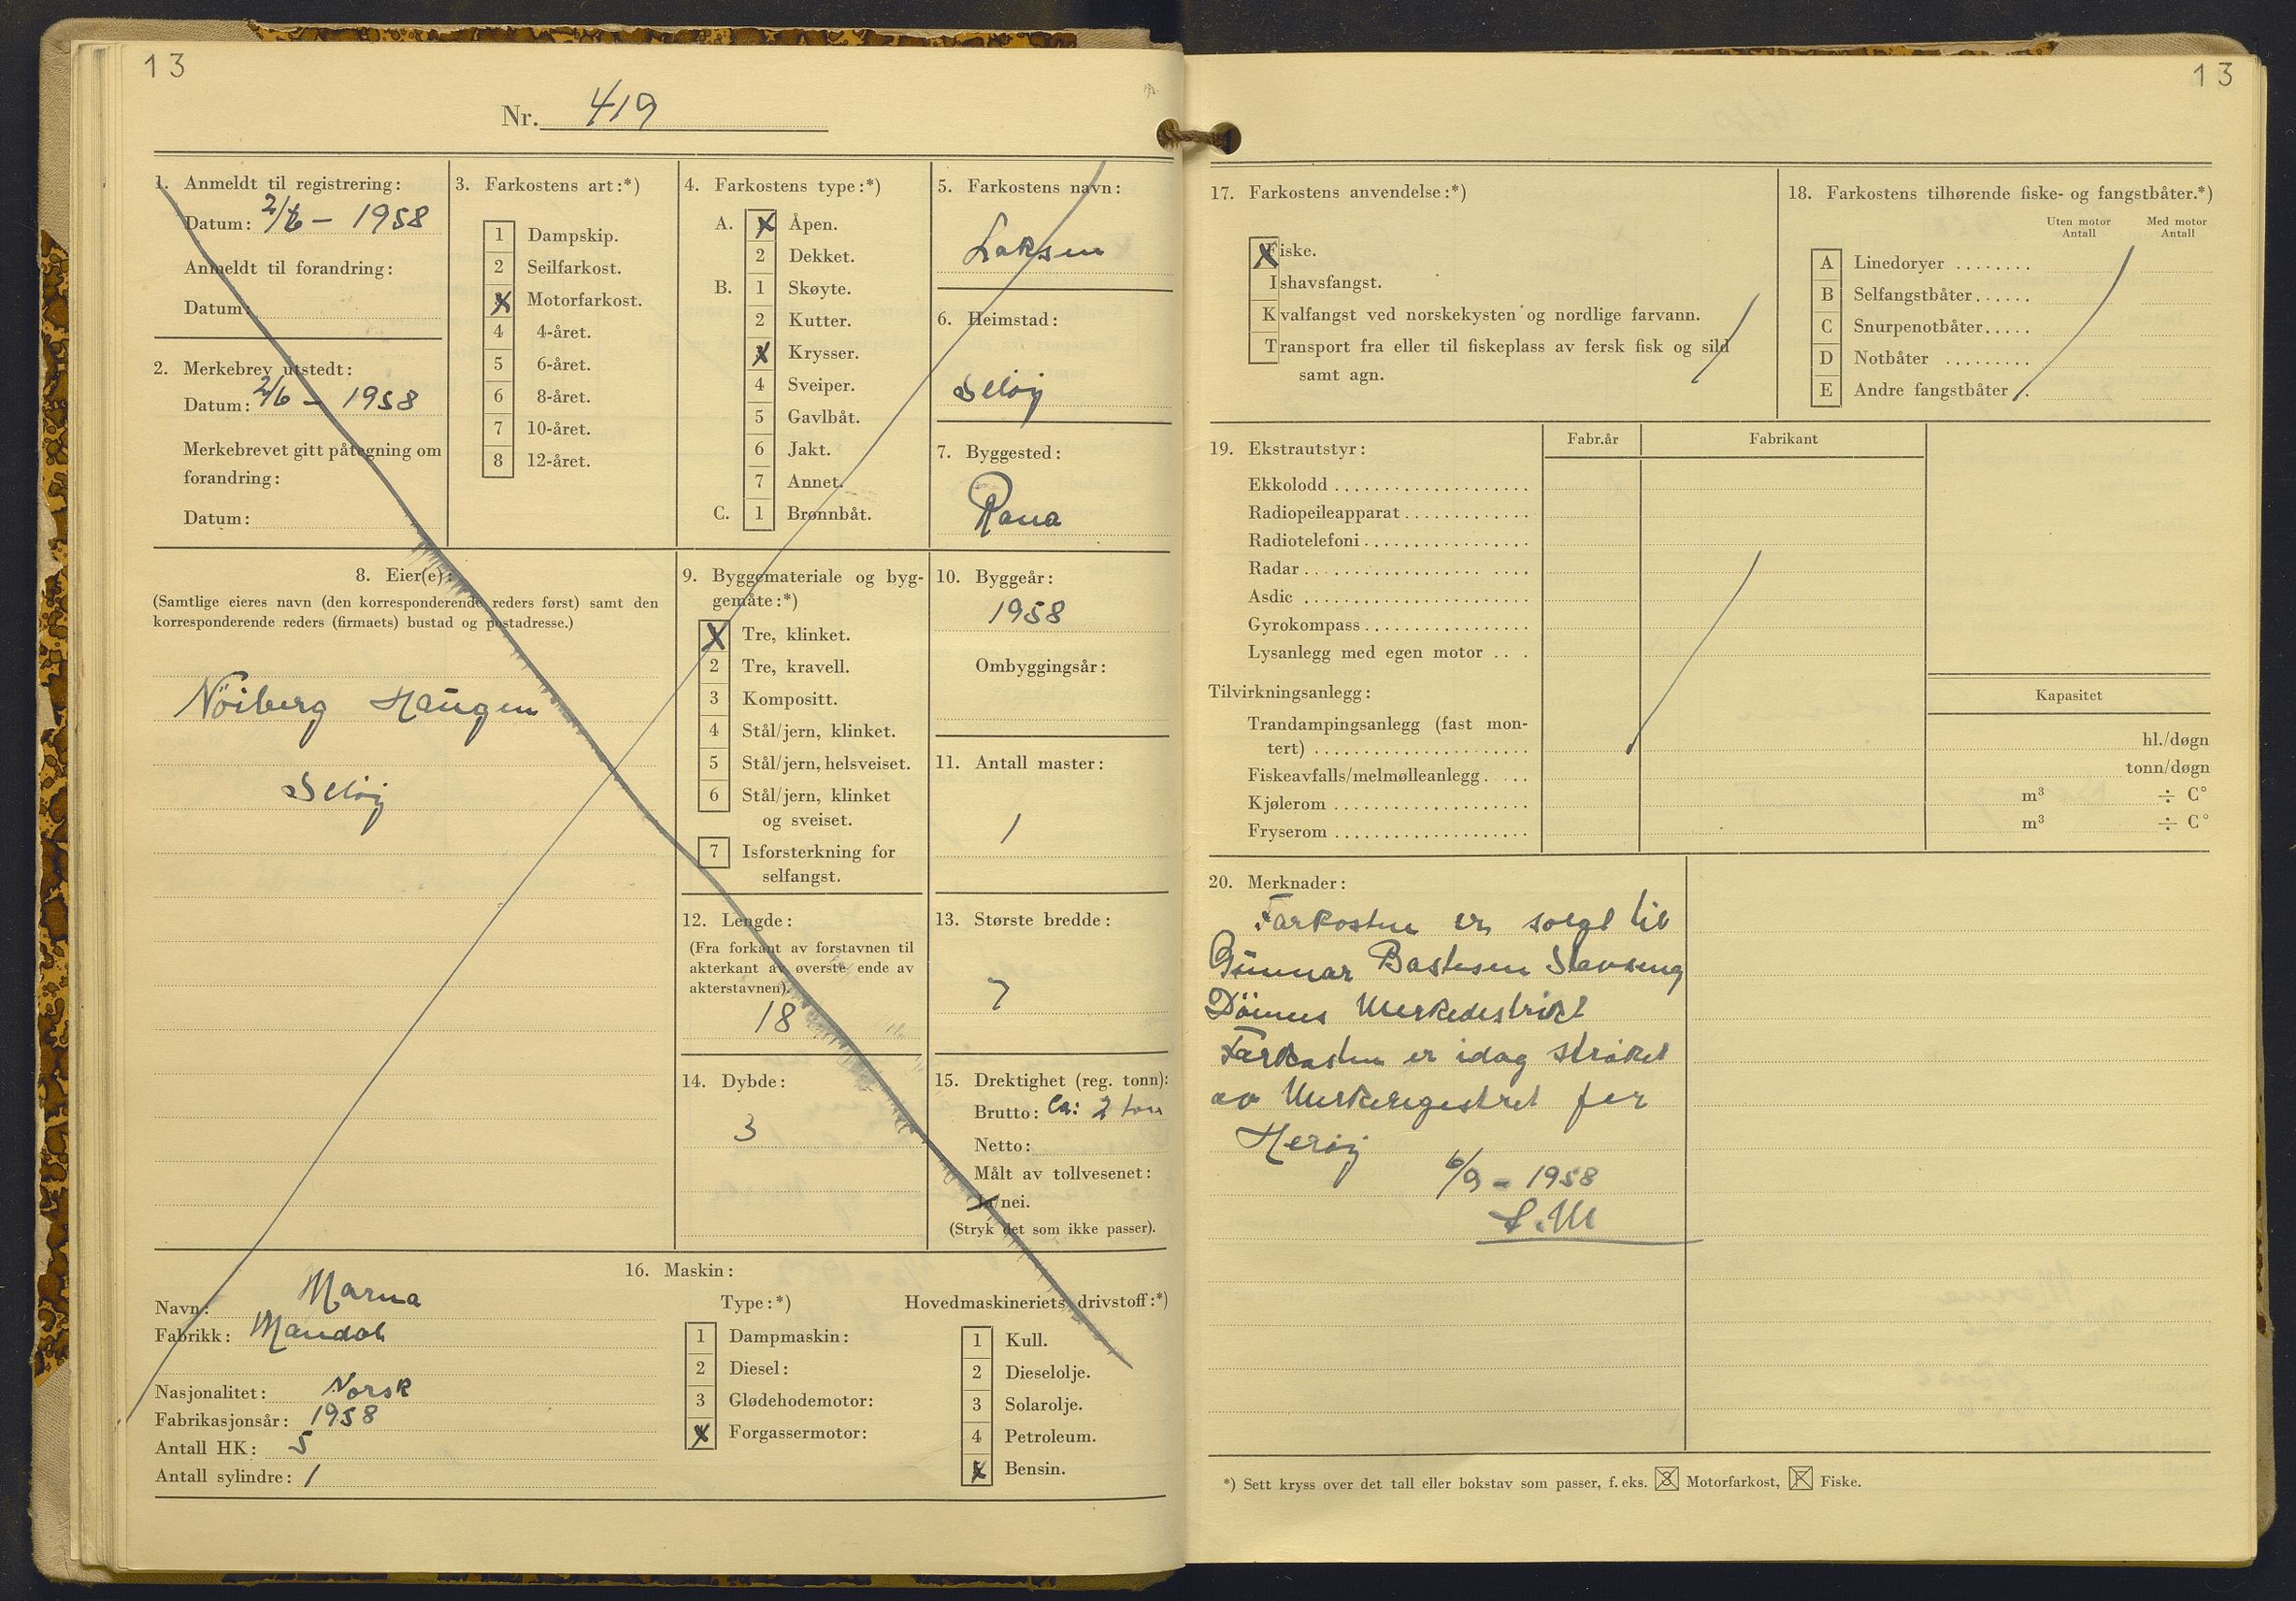 13
Nr. 419
1. Anmeldt til registrering:
Datum: 2/6 – 1958
Anmeldt til forandring:
Datum:
2. Merkebrev utstedt:
Datum: 2/6 – 1958
Merkebrevet gitt påtegning om
forandring:
Datum:
3. Farkostens art:*)
1 Dampskip.
2 Seilfarkost.
X Motorfarkost.
4 4-året.
5 6-året.
6 8-året.
7 10-året.
8 12-året.
4. Farkostens type:*)
A. X Åpen.
2 Dekket.
B. 1 Skøyte.
2 Kutter.
X Krysser.
4 Sveiper.
5 Gavlbåt.
6 Jakt.
7 Annet.
C. 1 Brønnbåt.
5. Farkostens navn:
Laksen
6. Heimstad:
Seløy
7. Byggested:
Rana
8. Eier(e):
(Samtlige eieres navn (den korresponderende reders først) samt den
korresponderende reders (firmaets) bustad og postadresse.)
Nöiberg Haugen
Seløy
9. Byggemateriale og byg-
gemåte:*)
X Tre, klinket.
2 Tre, kravell.
3 Kompositt.
4 Stål/jern, klinket.
5 Stål/jern, helsveiset.
6 Stål/jern, klinket
og sveiset.
7 Isforsterkning for
selfangst.
10. Byggeår:
1958
Ombyggingsår:
11. Antall master:
1
12. Lengde:
(Fra forkant av forstavnen til
akterkant av øverste ende av
akterstavnen).
18
13. Største bredde:
7
14. Dybde:
3
15. Drektighet (reg. tonn):
Brutto: ca: 2 ton
Netto:
Målt av tollvesenet:
Ja/nei.
(Stryk det som ikke passer).
16. Maskin:
Navn: Marna
Fabrikk: Mandal
Nasjonalitet: Norsk
Fabrikasjonsår: 1958
Antall HK: 5
Antall sylindre: 1
Type:*)
1 Dampmaskin:
2 Diesel:
3 Glødehodemotor:
X Forgassermotor:
Hovedmaskineriets drivstoff:*)
1 Kull.
2 Dieselolje.
3 Solarolje.
4 Petroleum.
X Bensin.
13
17. Farkostens anvendelse:*)
Fiske.
Ishavsfangst.
Kvalfangst ved norskekysten og nordlige farvann.
Transport fra eller til fiskeplass av fersk fisk og sild
samt agn.
18. Farkostens tilhørende fiske- og fangstbåter.*)
Uten motor Antall Med motor Antall
A Linedoryer ........
B Selfangstbåter......
C Snurpenotbåter.....
D Notbåter .........
E Andre fangstbåter .
19. Ekstrautstyr:
Fabr.år Fabrikant
Ekkolodd
Radiopeileapparat
Radiotelefoni
Radar
Asdic
Gyrokompass
Lysanlegg med egen motor
Tilvirkningsanlegg:
Kapasitet
Trandampingsanlegg (fast mon-
tert) hl./døgn
Fiskeavfalls/melmølleanlegg tonn/døgn
Kjølerom m³ ÷ C°
Fryserom m³ ÷ C°
20. Merknader:
Farkosten er solgt til
Gunnar Bastesen Slavseng
Dönnes Merkedistrikt
Farkosten er idag strøket
av Merkeregistret for
Herøy
6/9 – 1958
*) Sett kryss over det tall eller bokstav som passer, f. eks. 3 Motorfarkost, F Fiske.